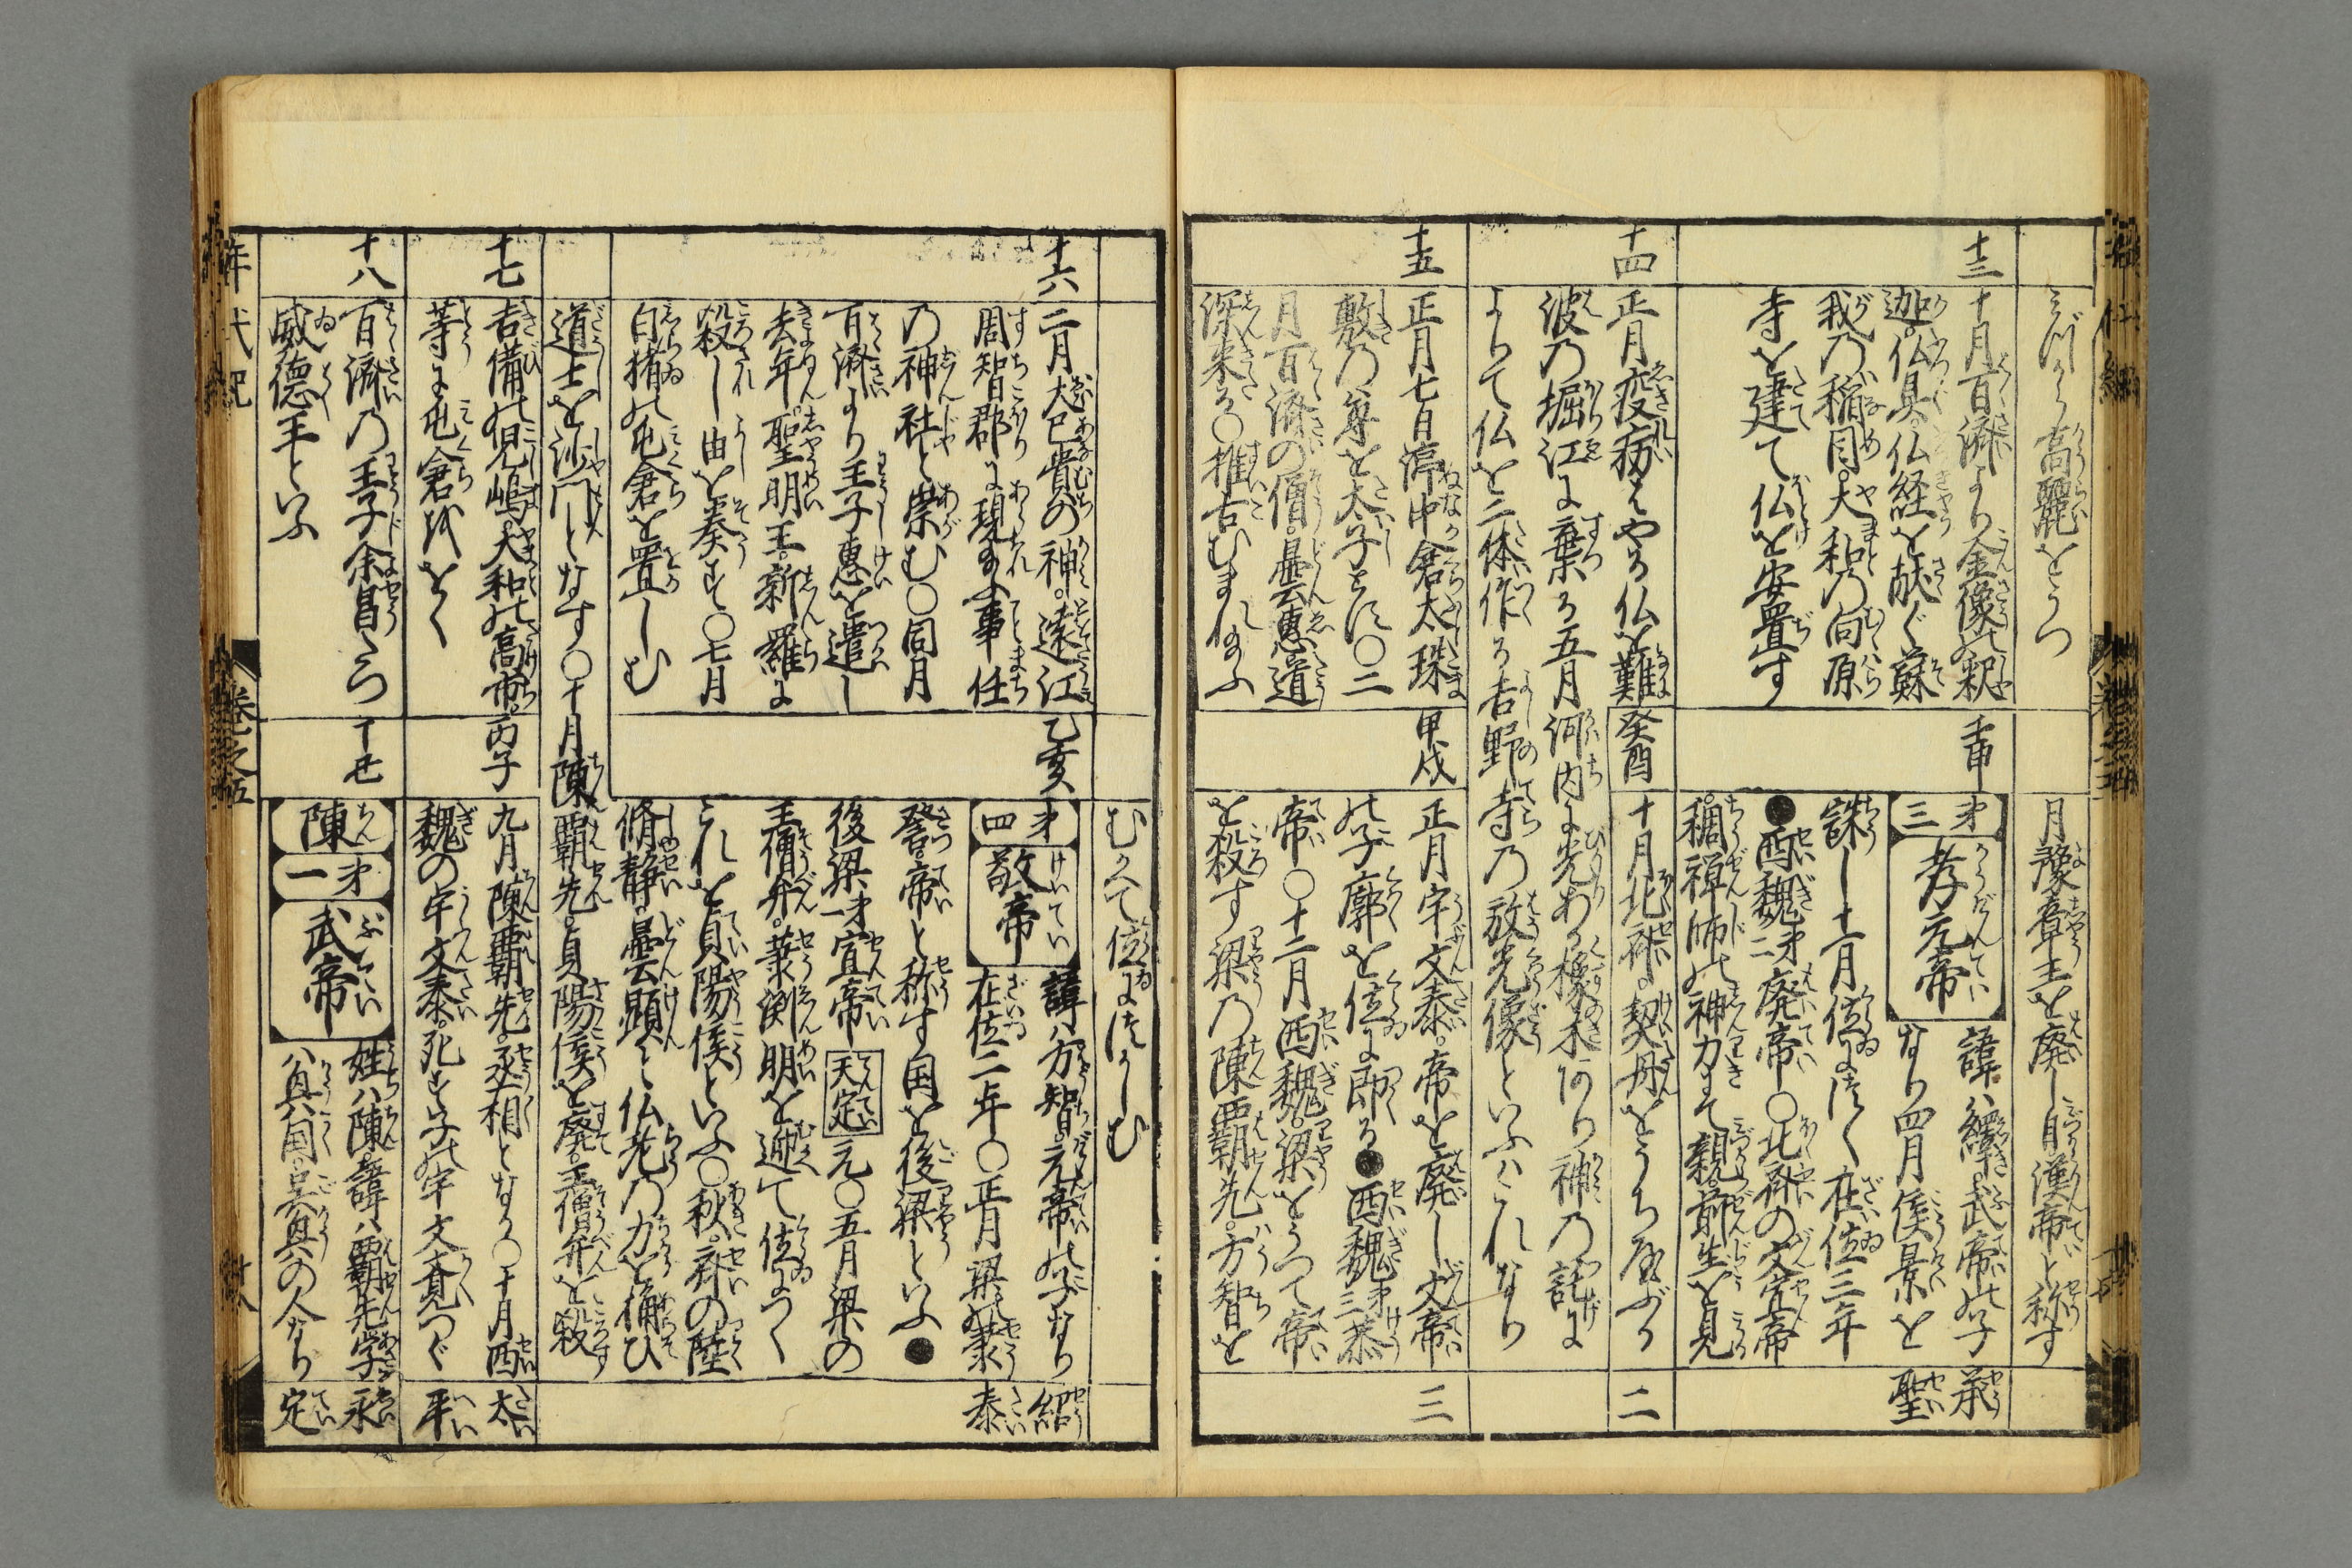 高麗をうつ
月豫章主を廃し自漢帝と称す
十三
十月百済より金像の釈
迦仏具仏経を献ぐ蘇
我乃稲目大和乃向原
寺を建て仏を安置す
壬申
才三
孝元帝
諱ハ繹武帝の子
なり四月侯景を
誅し十一月位につく在位三年
●西魏才二廃帝〇北斉の文宣帝
稠禅師の神力にて親前生を見
承聖
十四
正月疫病はやる仏を難
波乃堀江に棄る五月河内に光ある樟木あり神乃託に
よりて仏を二体作る吉野寺乃放光像といふハこれなり
癸酉
十月北斉契丹をうちやぶる
二
十五
正月七日渟中倉太珠
敷乃尊を太子とす〇二
月百済の僧曇恵道
深来る〇推古むまれ給ふ
甲戌
正月宇文泰帝を廃し文帝
の子廓を位に即る●西魏才三恭
帝〇十二月西魏梁をうつて帝
を殺す梁乃陳覇先方智を
三
むかへて位につかしむ
十六
二月大己貴の神遠江
周智郡に現給ふ事任
乃神社と崇む〇同月
百済より王子恵を遣し
去年聖明王新羅に
殺れし由を奏す〇七月
白猪の屯倉を置しむ
乙亥
才四
敬帝
諱ハ方智元帝の子なり
在位二年〇正月梁の蕭
詧帝と称す国を後梁といふ●
後梁才一宣帝
天定
元〇五月梁の
王僧弁蕭淵明を迎て位につく
これを貞陽侯といふ〇秋斉の陸
脩静曇顕と仏老乃力を桶ひ
道士を沙門となす〇十月陳覇先貞陽侯を廃王僧弁を殺
紹泰
十七
吉備の児嶋大和の高市
等に屯倉をおく
丙子
九月陳覇先丞相となる〇十月西
魏の宇文泰死す子の宇文覚つぐ
太平
十八
百済乃王子余昌たつ
威徳王といふ
丁丑
陳
才一
武帝
姓ハ陳諱ハ覇先字
ハ興国呉興の人なり
永定
年代記
巻之五